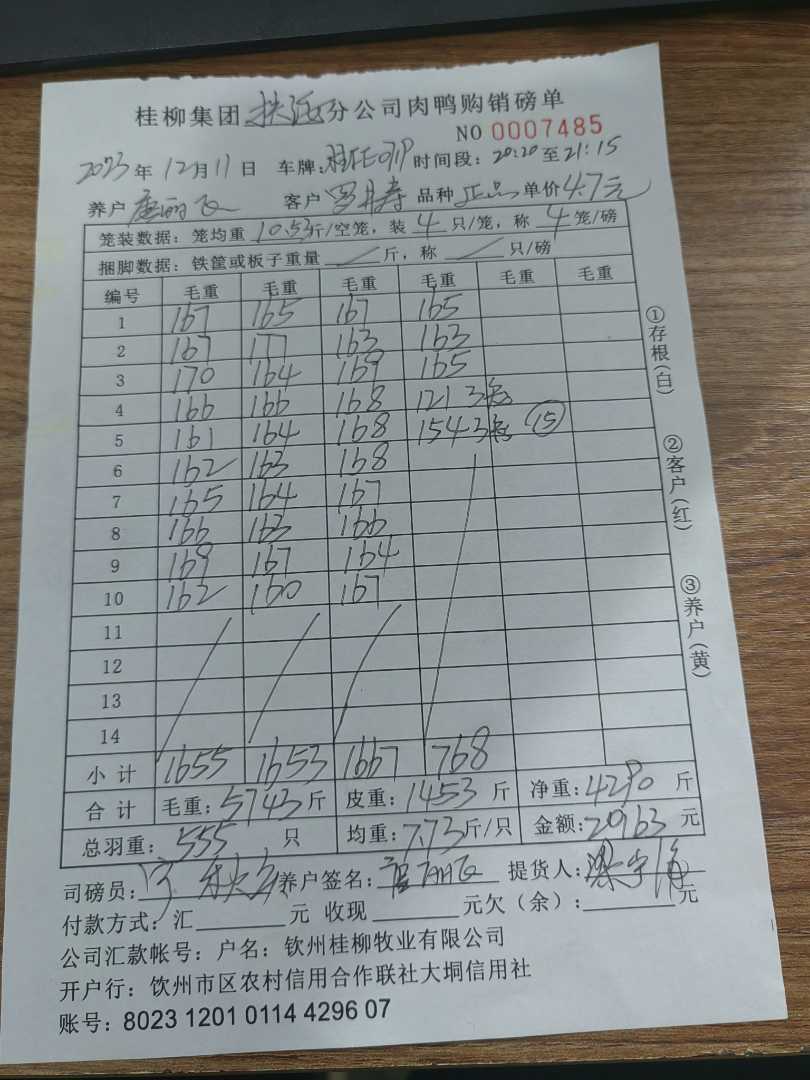 桂柳集团 扶绥 分公司肉鸭购销磅单
NO 0007485
2023年12月11日 车牌: 时间段:20:20至21:15
养户 客户 罗其寿 品种 正品 单价4.7元
笼装数据:笼均重 10.53斤/空笼,装 4 只/笼,称 4 笼/磅
捆脚数据:铁筐或板子重量 / 斤,称 / 只/磅
编号 毛重 毛重 毛重 毛重 毛重 毛重
1 167 165 167 165
2 167 177 163 163
3 170 164 169 165
4 166 166 168 121 3笼
5 161 164 168 154 3笼 (15)
6 162 163 168
7 165 164 167
8 166 163 166
9 169 167 164
10 162 160 167
11
12
13
14
小计 1655 1653 1667 768
合计 毛重:5743斤 皮重:1453斤 净重:4290斤
总羽重:555只 均重:7.73斤/只 金额:20163元
司磅员: 养户签名: 提货人:
付款方式:汇______元 收现______元欠(余):______元
公司汇款帐号:户名:钦州桂柳牧业有限公司
开户行:钦州市区农村信用合作联社大垌信用社
账号:8023 1201 0114 4296 07
①存根(白)
②客户(红)
③养户(黄)